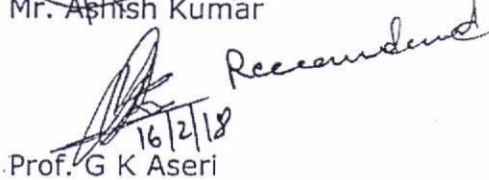 Mr. Ashish Kumar
Recommend
16/2/18
Prof. G K Aseri